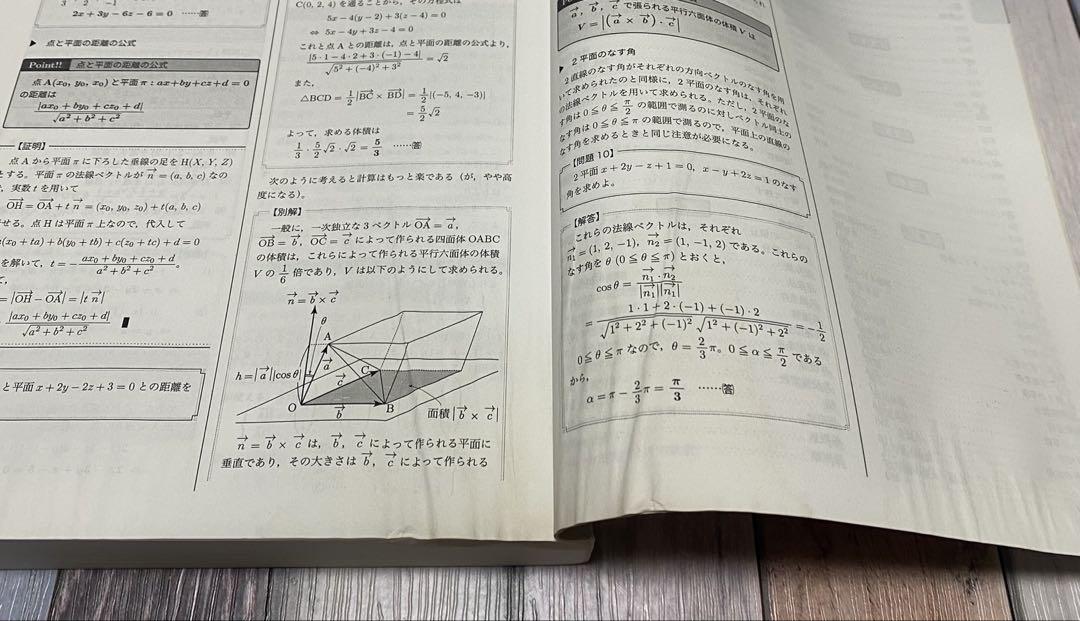 2x+3y−6z−6=0 ……答
▶ 点と平面の距離の公式
Point!! 点と平面の距離の公式
点A(x₀, y₀, x₀) と平面π : ax+by+cz+d=0
の距離は
|ax₀+by₀+cz₀+d| / √(a²+b²+c²)
【証明】
点Aから平面πに下ろした垂線の足をH(X, Y, Z)
とする。平面πの法線ベクトルが n→=(a, b, c) なの
で, 実数 t を用いて
OH→=OA→+t n→=(x₀, y₀, z₀)+t(a, b, c)
せる。点Hは平面π上なので, 代入して
a(x₀+ta)+b(y₀+tb)+c(z₀+tc)+d=0
を解いて, t=−(ax₀+by₀+cz₀+d)/(a²+b²+c²)。
=|OH→−OA→|=|t n→|
|ax₀+by₀+cz₀+d| / √(a²+b²+c²) ∎
と平面 x+2y−2z+3=0 との距離を
C(0, 2, 4) を通ることから, その方程式は
5x−4(y−2)+3(z−4)=0
⇔ 5x−4y+3z−4=0
これと点Aとの距離は, 点と平面の距離の公式より,
|5・1−4・2+3・(−1)−4| / √(5²+(−4)²+3²) = √2
また,
△BCD=1/2|BC→×BD→|=1/2|(−5, 4, −3)|
=5/2√2
よって, 求める体積は
1/3・5/2√2・√2=5/3 ……答
次のように考えると計算はもっと楽である(が, やや高
度になる)。
【別解】
一般に, 一次独立な3ベクトル OA→=a→,
OB→=b→, OC→=c→ によって作られる四面体OABC
の体積は, これらによって作られる平行六面体の体積
V の 1/6 倍であり, V は以下のようにして求められる。
n→=b→×c→
θ
A
h=|a→||cosθ|
a→
c→
C
O
b→
B
面積|b→×c→|
n→=b→×c→ は, b→, c→ によって作られる平面に
垂直であり, その大きさは b→, c→ によって作られる
a→, b→, c→ で張られる平行六面体の体積 V は
V=|(a→×b→)・c→|
▶ 2平面のなす角
2直線のなす角がそれぞれの方向ベクトルのなす角を用
いて求められたのと同様に, 2平面のなす角は, それぞれ
の法線ベクトルを用いて求められる。ただし, 2平面のな
す角は 0≦θ≦π/2 の範囲で測るのに対しベクトル同士の
なす角は 0≦θ≦π の範囲で測るので, 平面上の直線の
なす角を求めるときと同じ注意が必要になる。
【問題10】
2平面 x+2y−z+1=0, x−y+2z=1 のなす
角を求めよ。
【解答】
これらの法線ベクトルは, それぞれ
n₁→=(1, 2, −1), n₂→=(1, −1, 2) である。これらの
なす角を θ (0≦θ≦π) とおくと,
cosθ=n₁→・n₂→ / |n₁→||n₁→|
=(1・1+2・(−1)+(−1)・2) / (√(1²+2²+(−1)²) √(1²+(−1)²+2²)) =−1/2
0≦θ≦π なので, θ=2/3π。0≦α≦π/2 である
から,
α=π−2/3π=π/3 ……答